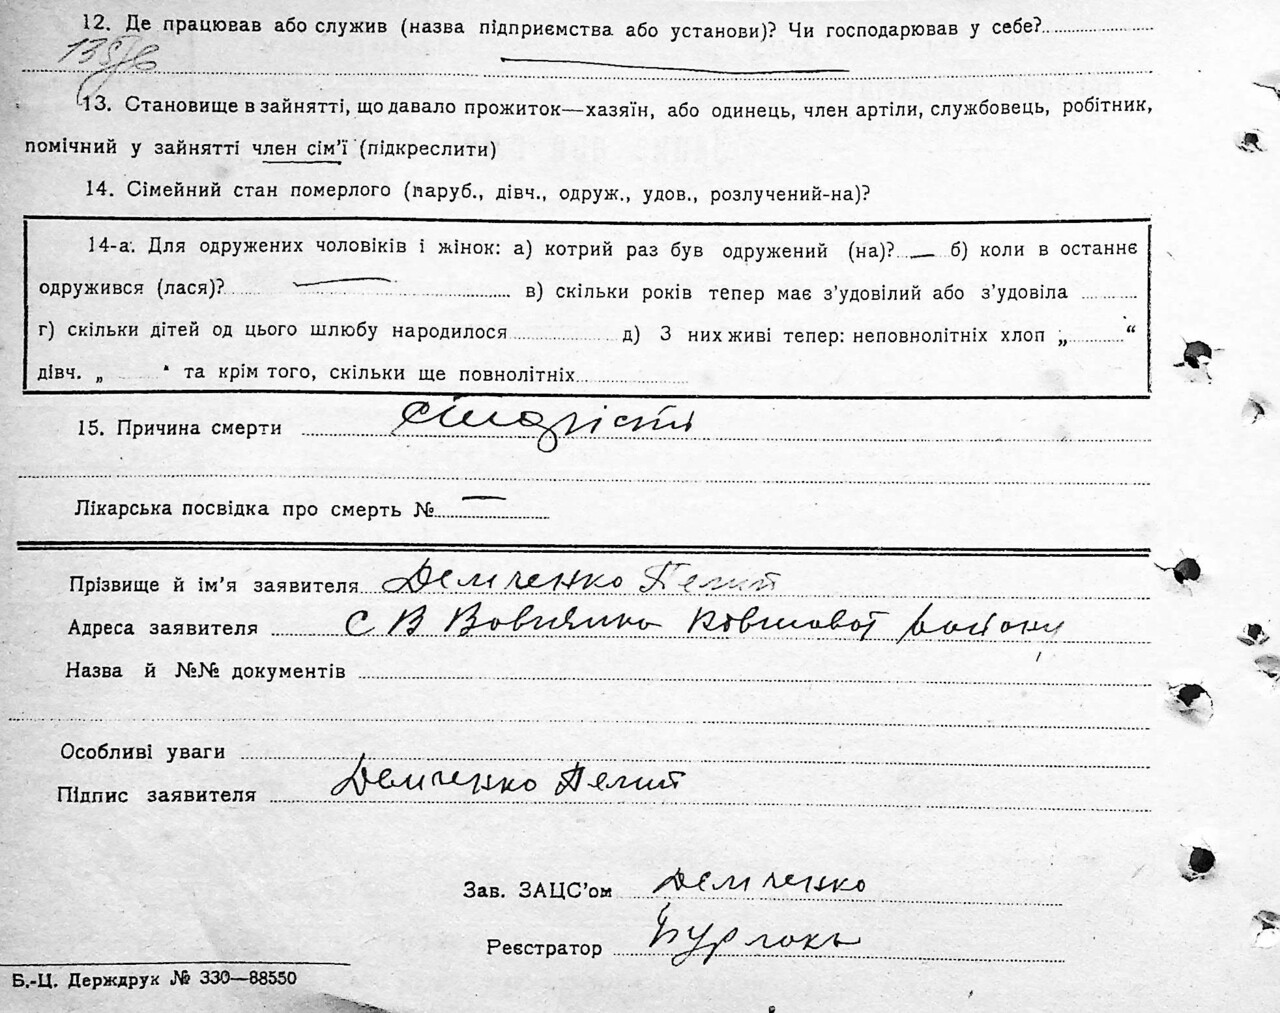 12. Де працював або служив (назва підприємства або установи)? Чи господарював у себе?
13. Становище в зайнятті, що давало прожиток—хазяїн, або одинець, член артілі, службовець, робітник,
помічний у зайнятті член сім'ї (підкреслити)
14. Сімейний стан померлого (паруб., дівч., одруж., удов., розлучений-на)?
14-а. Для одружених чоловіків і жінок: а) котрий раз був одружений (на)? — б) коли в останнє
одружився (лася)? — в) скільки років тепер має з'удовілий або з'удовіла
г) скільки дітей од цього шлюбу народилося д) З них живі тепер: неповнолітніх хлоп „ “
дівч. „ “ та крім того, скільки ще повнолітніх
15. Причина смерти старість
Лікарська посвідка про смерть № —
Прізвище й ім'я заявителя Демченко
Адреса заявителя С В Вовнянка района
Назва й №№ документів
Особливі уваги
Підпис заявителя Демченко
Зав. ЗАЦС'ом Демченко
Реєстратор Бурлака
Б.-Ц. Держдрук № 330—88550